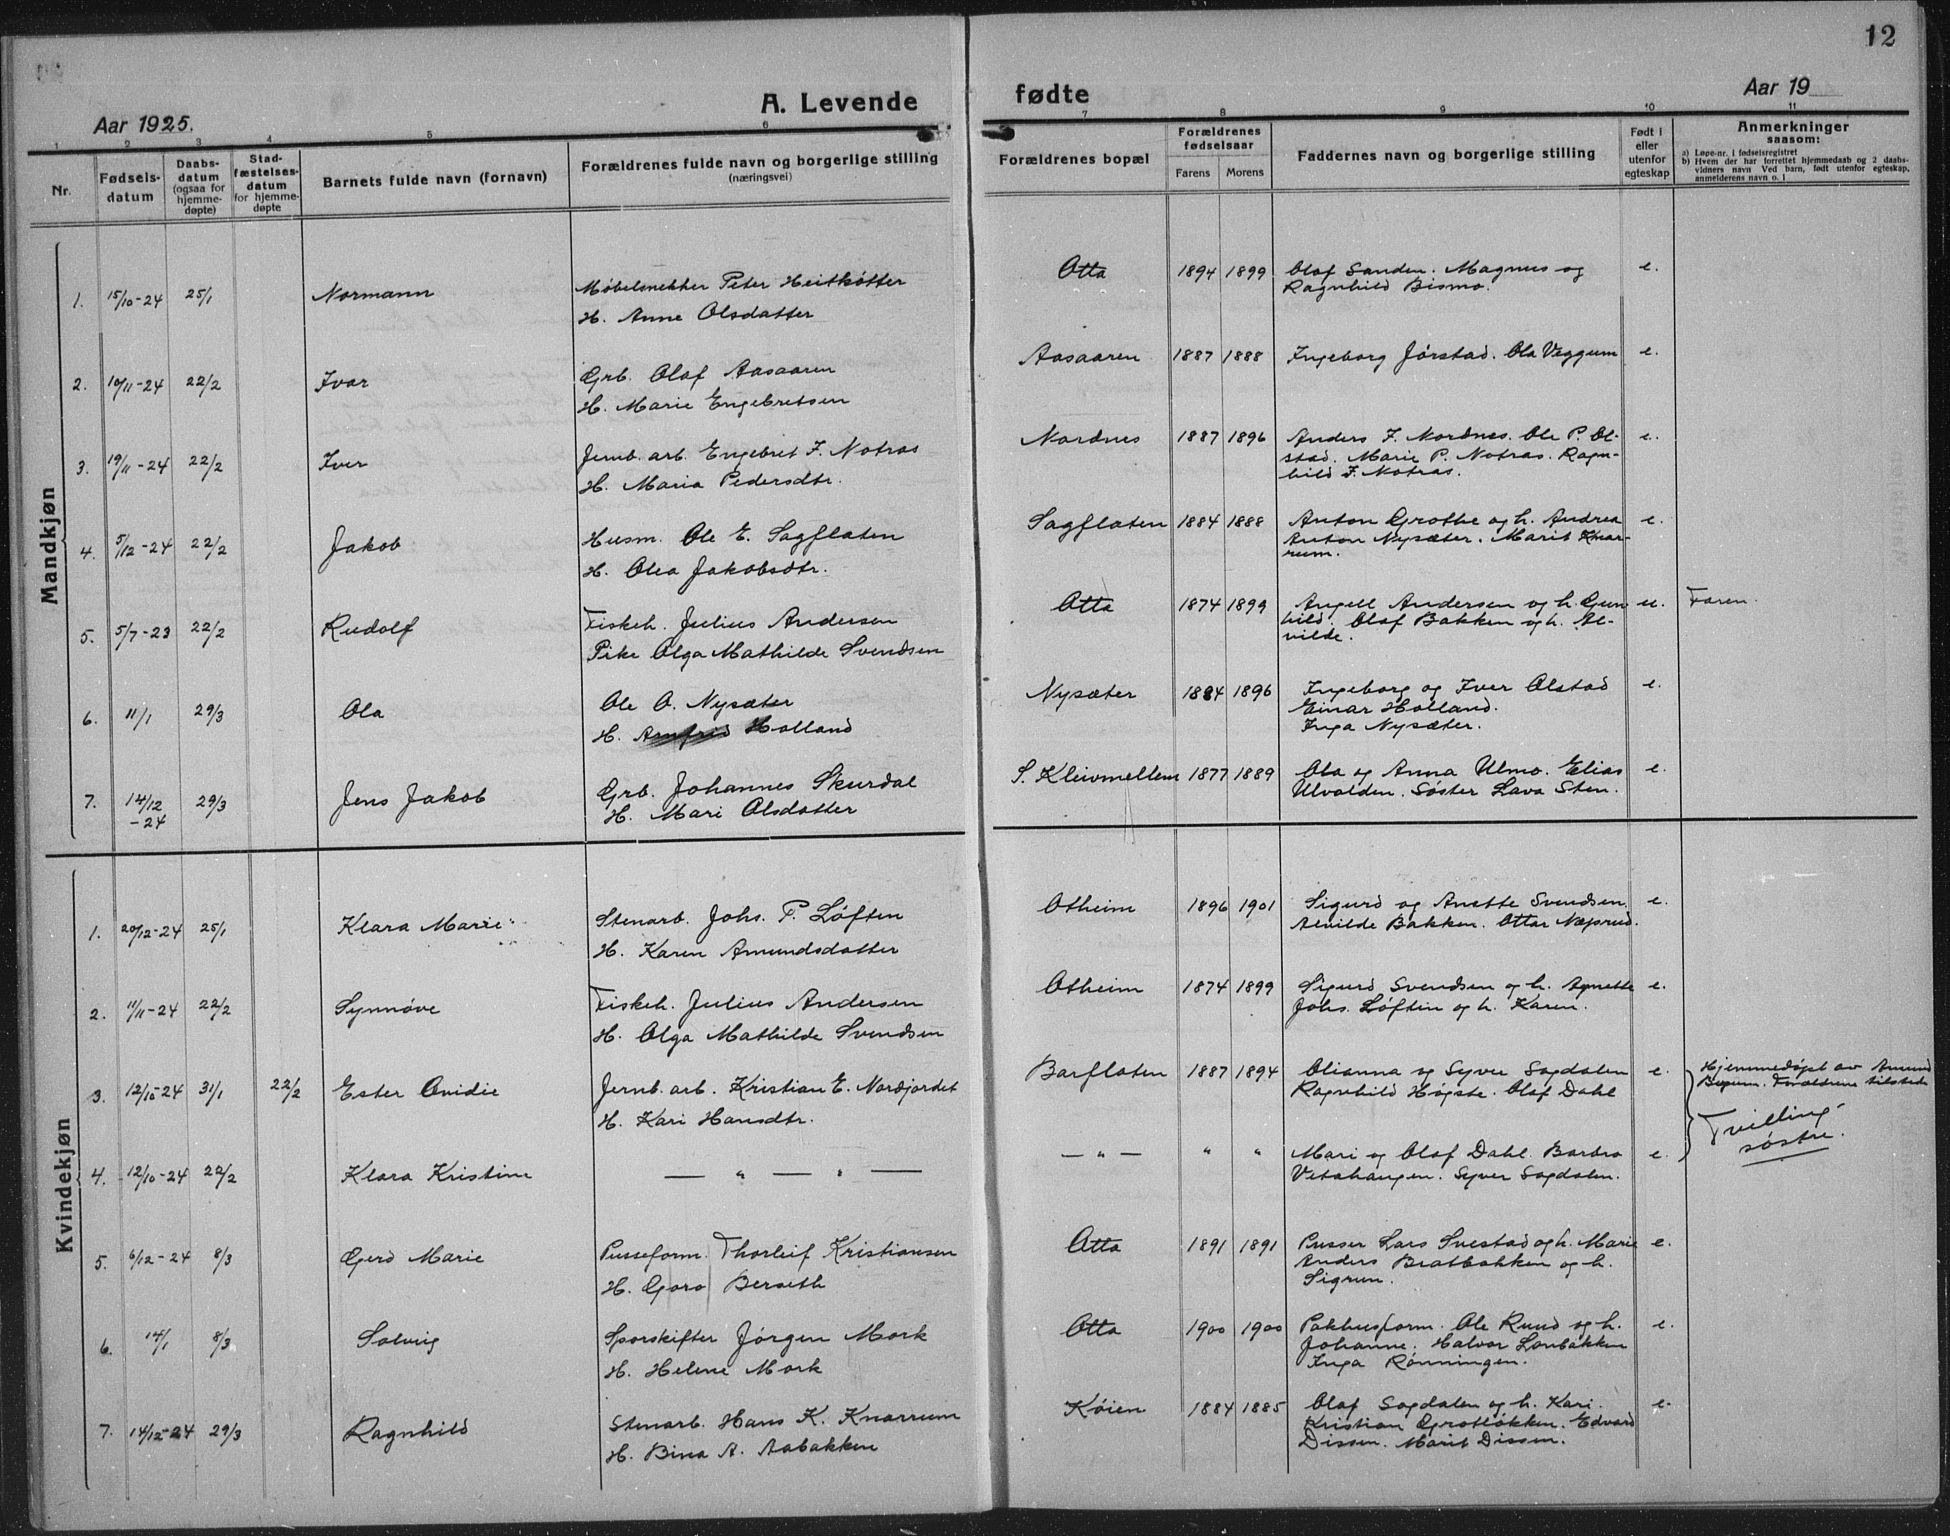 12
Aar 1925.
A. Levende fødte
Aar 19
1 2 3 4 5 6 7 8 9 10 11
Nr.
Fødsels-
datum
Daabs-
datum
(ogsaa for
hjemme-
døpte)
Stad-
fæstelses-
datum
for hjemme-
døpte
Barnets fulde navn (fornavn)
Forældrenes fulde navn og borgerlige stilling
(næringsvei)
Forældrenes bopæl
Forældrenes
fødselsaar
Farens Morens
Faddernes navn og borgerlige stilling
Født i
eller
utenfor
egteskap
Anmerkninger
saasom:
a) Løpe-nr. i fødselsregistret
b) Hvem der har forrettet hjemmedaab og 2 daabs-
vidners navn Ved barn, født utenfor egteskap,
anmelderens navn o. l
Mandkjøn
1. 15/10-24 25/1 Normann Møbelsnekker Peter Heitkøtter Otta 1894 1899 Olaf Sanden. Magnus og e.
H. Anne Olsdatter Ragnhild Bismo.
2. 10/11-24 22/2 Ivar Grb. Olaf Aasaaren Aasaaren 1887 1888 Ingeborg Jørstad. Ola Veggum e.
H. Marie Engebretsen
3. 19/11-24 22/2 Iver Jernb. arb. Engebret F. Notras Nordnes 1887 1896 Anders F. Nordnes. Ole P. Ol- e.
H. Maria Pedersdtr. stad. Marie P. Notras. Ragn-
hild F. Notras.
4. 5/12-24 22/2 Jakob Husm. Ole E. Sagflaten Sagflaten 1884 1888 Anton Grothe og h. Andrea e.
H. Olea Jakobsdtr. Anton Nysæter. Marit Knar-
rum.
5. 5/7-23 22/2 Rudolf Fiskeh. Julius Andersen Otta 1874 1899 Angell Andersen og h. Gun- u. Faren.
Pike Olga Mathilde Svendsen hild. Olaf Bakken og h. Al-
vilde.
6. 11/1 29/3 Ola Ole O. Nysæter Nysæter 1884 1896 Ingeborg og Iver Olstad e.
H. Holland Einar Holland.
Inga Nysæter.
7. 14/12 29/3 Jens Jakob Grb. Johannes Skurdal S. Kleivmellem 1877 1889 Ola og Anna Ulmo. Elias e.
-24 H. Mari Olsdatter Ulvolden. Søster Lava Sten.
Kvindekjøn
1. 20/12-24 25/1 Klara Marie Stenarb. Johs. P. Løften Otheim 1896 1901 Sigurd og Anette Svendsen. e.
H. Karen Amundsdatter Alvilde Bakken. Ottar Næprud.
2. 11/11-24 22/2 Synnøve Fiskeh. Julius Andersen Otheim 1874 1899 Sigurd Svendsen og h. Agnette e.
H. Olga Mathilde Svendsen Johs. Løften og h. Karen.
3. 12/10-24 31/1 22/2 Ester Ovidie Jernb. arb. Kristian E. Nordjordet Barflaten 1887 1894 Olianna og Syver Sogdalen e. Hjemmedøpt av Amund
H. Kari Hansdtr. Ragnhild Høgste. Olaf Dahl Forældrene tilstede
Tvilling-
søstre.
4. 12/10-24 22/2 Klara Kristine — " — " — — " — " " Mari og Olaf Dahl. Barbro e.
Vetahaugen. Syver Sogdalen.
5. 6/12-24 8/3 Gerd Marie Pusseform. Thorleif Kristiansen Otta 1891 1891 Pusser Lars Svestad og h. Marie e.
H. Goro Berseth Anders Bratbakken og h.
Sigrun.
6. 14/1 8/3 Solveig Sporskifter Jørgen Mork Otta 1900 1900 Pakhusform. Ole Ruud og h. e.
H. Helene Mork Johanne. Halvor Lonbakken
Inga Rønningen.
7. 14/12-24 29/3 Ragnhild Stenarb. Hans K. Knarrum Køien 1884 1885 Olaf Sogdalen og h. Kari. e.
H. Bina A. Aabakken Kristian Grotløkken. Edvard
Dissen. Marit Dissen.